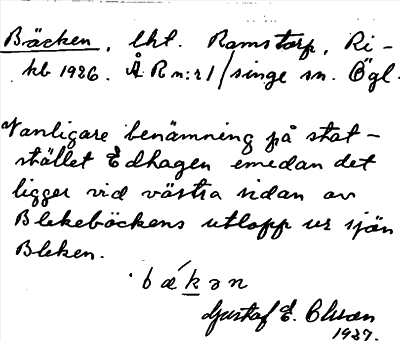 Bäcken, lht. Ramstorp, Ri-
kb 1926. Å R n:r 1/singe sn. Ögl.
Vanligare benämning på stat-
stället Edhagen emedan det
ligger vid västra sidan av
Blekebäckens utlopp ur sjön
Bleken.
bækən
Gustaf E. Olsson
1927.